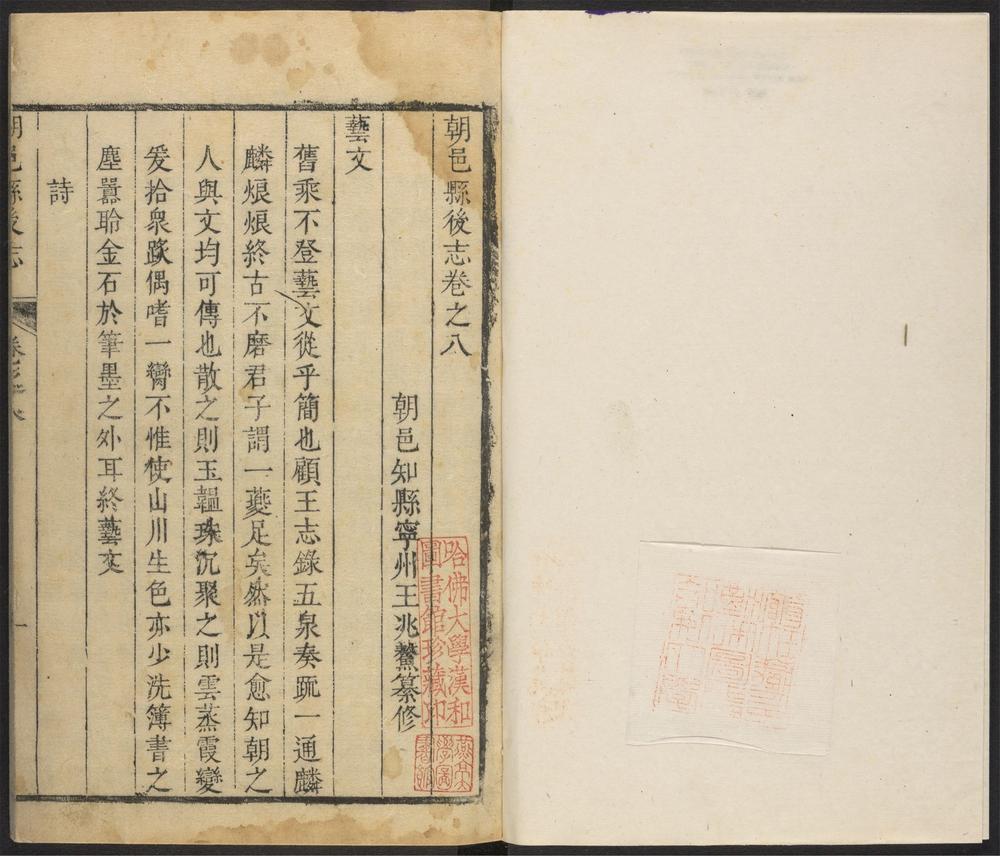 朝邑縣後志卷之八
朝邑知縣寧州王兆鰲纂修
藝文
舊乘不登藝文從乎簡也顧王志錄五泉奏䟽一通麟
麟烺烺終古不磨君子謂一夔足矣然以是愈知朝之
人與文均可傳也散之則玉韞珠沉聚之則雲蒸霞變
爰拾衆䟽偶嗜一臠不惟使山川生色亦少洗簿書之
塵囂聆金石於筆墨之外耳終藝文
詩
朝邑縣後志
卷之八
一
哈佛大學漢和
圖書館珍藏印